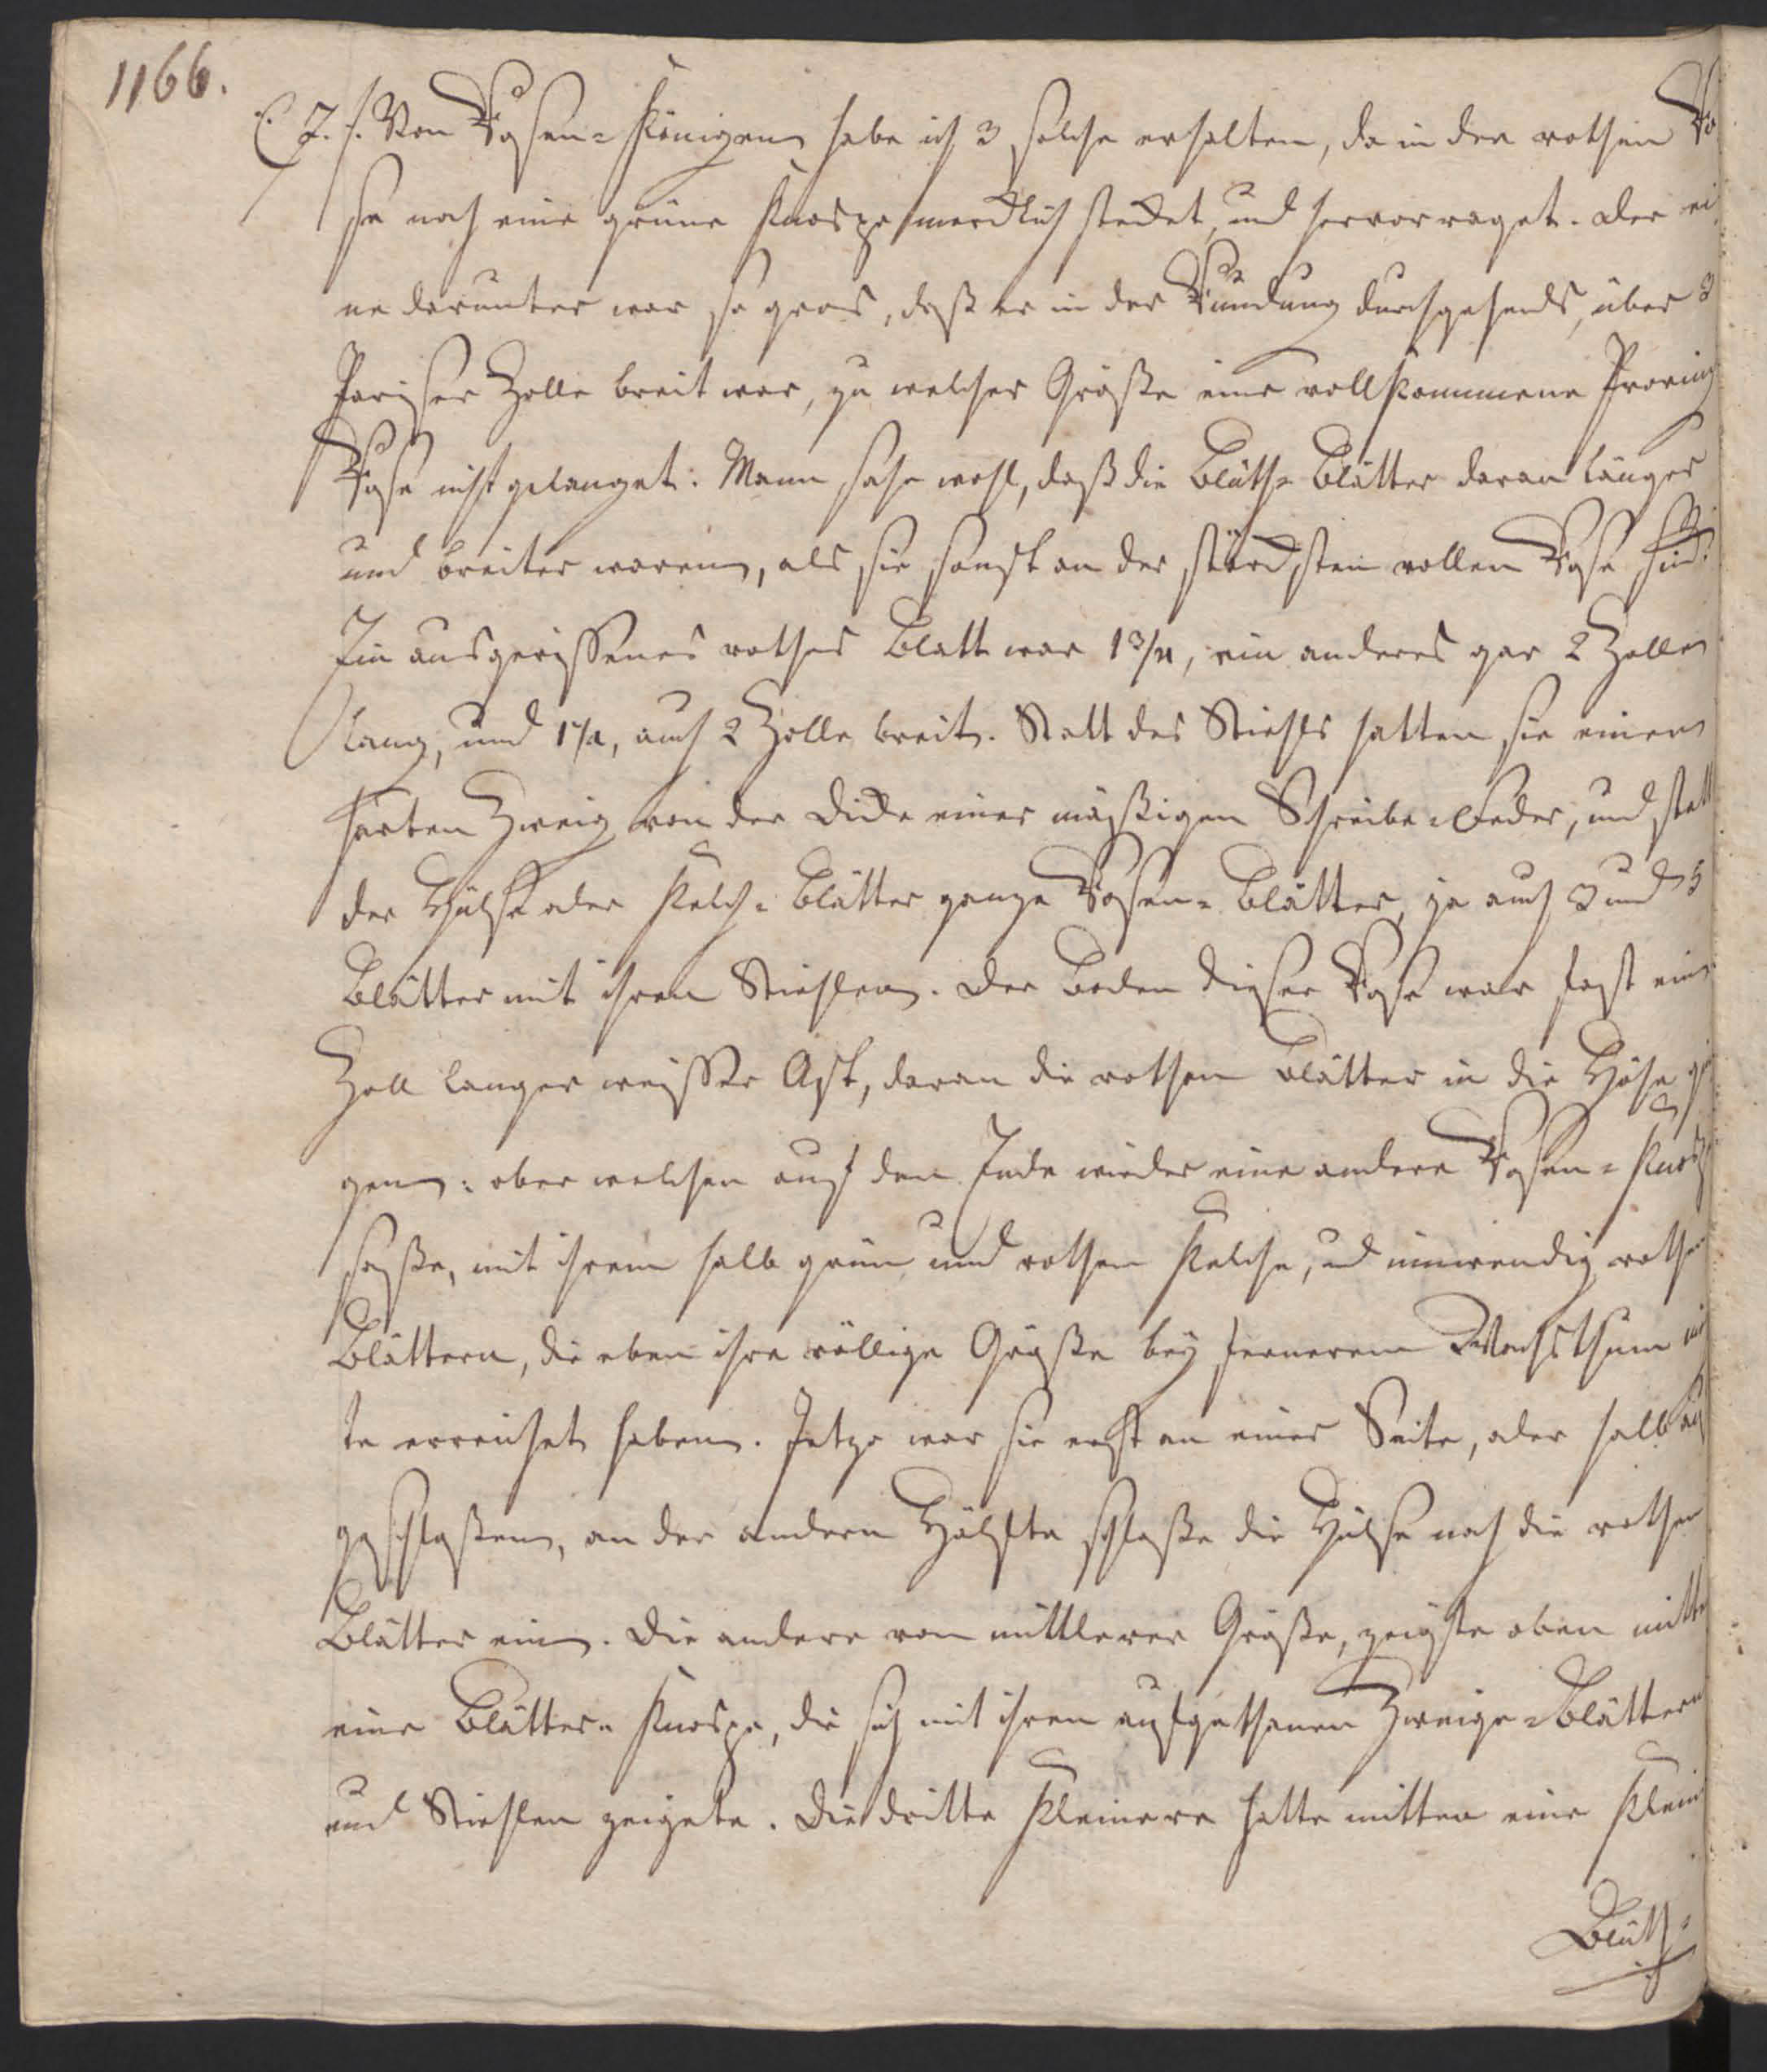 1166.
(. 7. ). Von Rosen-Königen habe ich 3 solche erhalten, da in der rothen Ro
se noch eine grüne Knospe merklich stecket, und hervorraget. Der ei
ne darunter war so gros, daß er in der Rundung durchgehends, über 3
Pariser Zolle breit war, zu welcher Größe eine vollkommene Provinz
Rose nicht gelanget. Mann sahe wohl, daß die Blüth-Blätter daran länger
und breiter waren, als sie sonst an der stärcksten vollen Rose sind.
Ein ausgerissenes rothes Blatt war 1 3/4, ein anderes gar 2 Zolle
lang, und 1 1/2, auch 2 Zolle breit. Statt des Stiehls hatten sie einen
harten Zweig von der Dicke einer mäßigen Schreibe-Feder, und statt
der Hülse oder Kelch-Blätter ganze Rosen-Blätter, ja auch 3 und 5
Blätter mit ihren Stiehlen. Der Boden dieser Rose war fast ein
Zoll langer weisser Ast, daran die rothen Blätter in die Höhe gin
gen: ober welchen auf dem Ende wieder eine andere Rosen-Knosp
saße, mit ihrem halb grün und rothen Kelche, und inwendig rothen
Blättern, die eben ihre völlige Größe bey fernerem Wachsthum
te erreichet haben. Jetzo war sie erst an einer Seite, oder halb auf
geschloßen, an der andern Hälfte schloße die Hülse noch die rothen
Blätter ein. Die andere von mittlerer Größe, zeigte oben mitten
eine Blätter-Knospe, die sich mit ihren aufgethanen Zweige-Blättern
und Stiehlen zeigete. Die dritte kleinere hatte mitten eine kleine
Blüth-